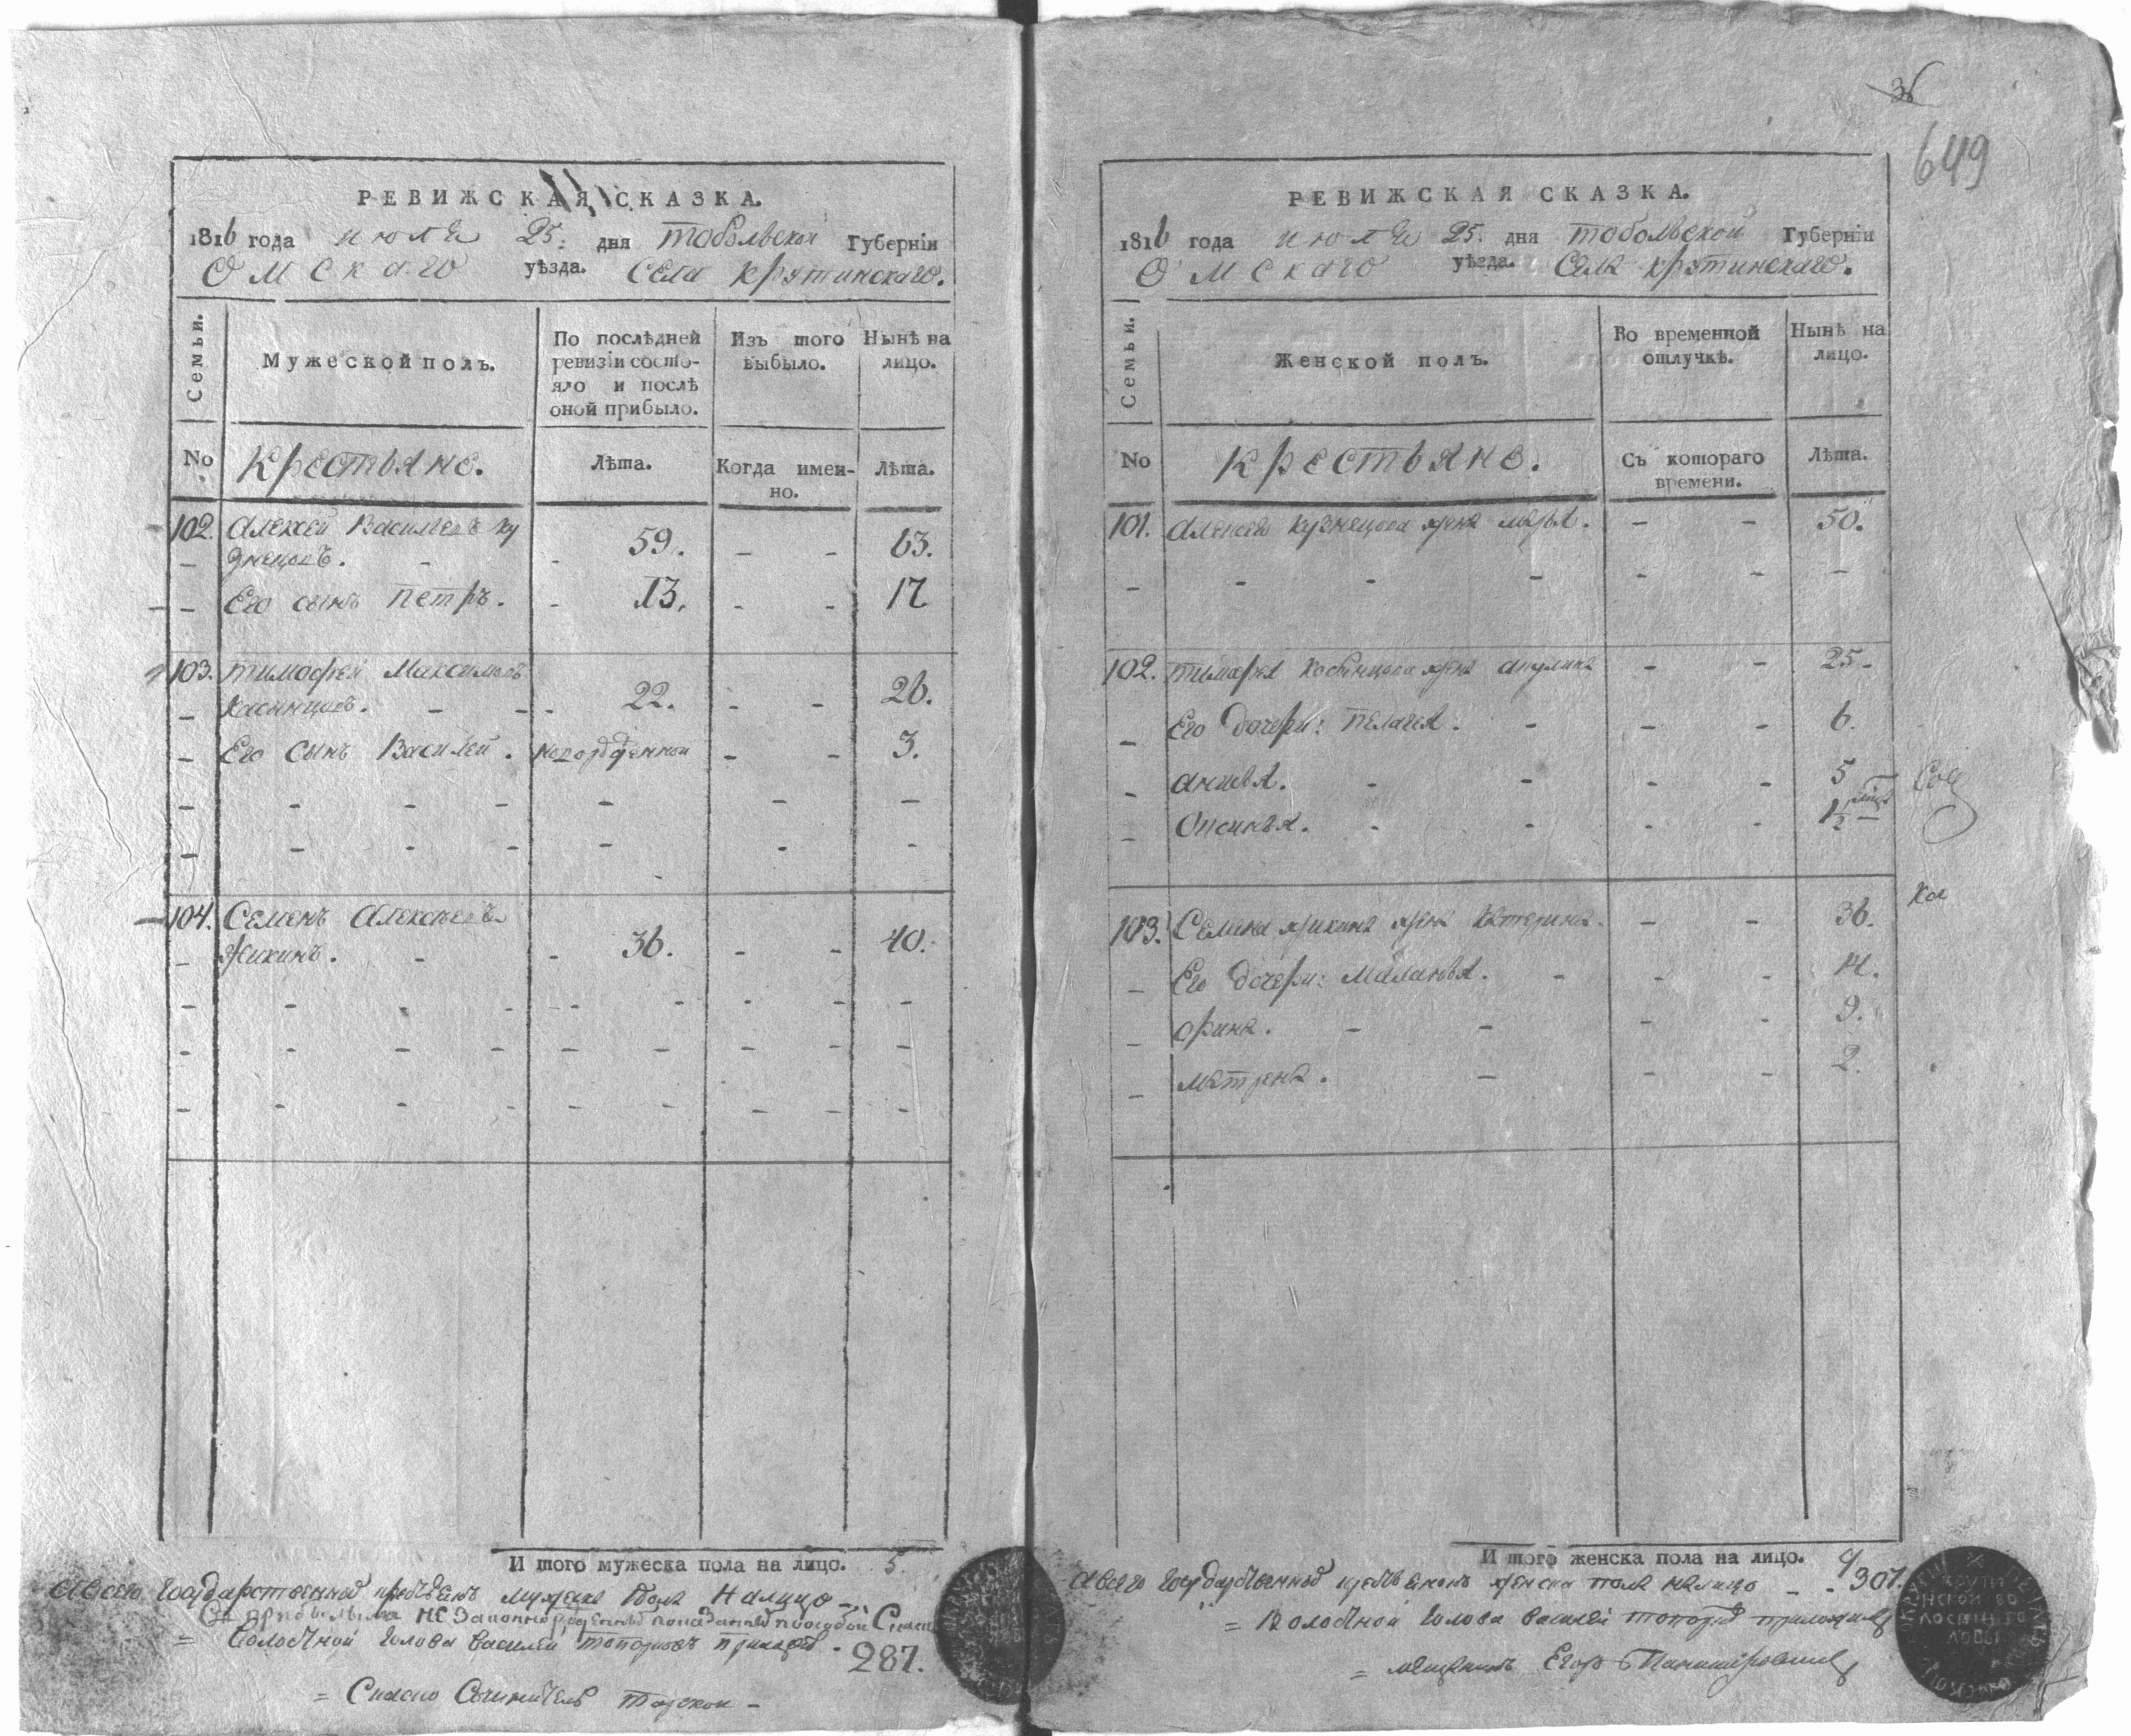 РЕВИЖСКАЯ СКАЗКА.
1816 года июля 25. дня Тобольской Губернїи
Омскаго уѣзда. Села Крутинскаго.
Семьи.
Мужеской полъ.
По послѣдней ревизїи состо-
яло и послѣ
оной прибыло.
Изъ того
выбыло.
Нынѣ на
лицо.
No
Крестьяне.
Лѣта.
Когда имен-
но.
Лѣта.
102. Алексей Васильевъ Ку
знецовъ. - - 59. - - 63.
- Его сынъ Петръ. - 13. - - 17
103. Тимофей Максимовъ
- Касинцовъ. - - - 22. - - 26.
- Его сынъ Василей. новорожденной - - 3.
104. Семенъ Алексѣевъ
- Жикинъ. - - 36. - - 40.
И того мужеска пола на лицо. 5.
Всего государственныхъ крестьянъ мужеска пола налицо -
287.
Волостной голова Василей Топоровъ
36
649
РЕВИЖСКАЯ СКАЗКА.
1816 года июля 25. дня Тобольской Губернїи
Омскаго уѣзда. Села Крутинскаго.
Семьи.
Женской полъ.
Во временной
отлучкѣ.
Нынѣ на
лицо.
No
Крестьяне.
Съ котораго
времени.
Лѣта.
101. Алексея Кузнецова жена Марья. - - 50.
102. Тимофея Косинцова жена Акулина - - 25.
- Его дочери: Пелагея. - - - 6.
- Анисья. - - - - 5
- Оксинья. - - - - 1/2
103. Семена Жикина жена Катерина. - - 36.
- Его дочери: Маланья. - - - 14.
- Орина. - - - - 9.
- Матрена. - - - 2.
И того женска пола на лицо. 9
государственныхъ крестьянъ женска пола налицо - - 307.
= Волостной голова Василей Топоровъ приложилъ
Егор